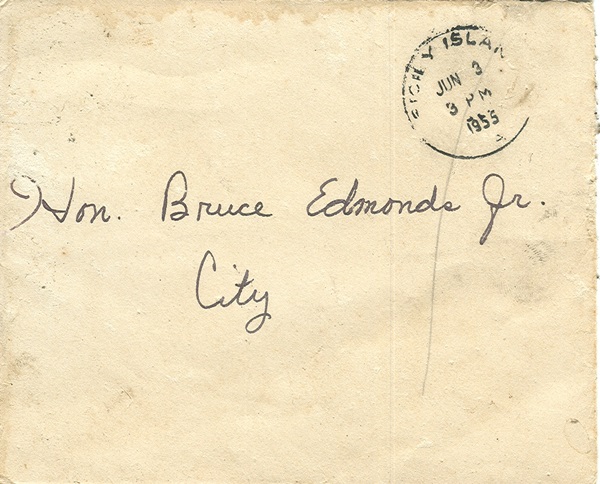 SICILY ISLAN
JUN 3
3 PM
1955
Hon. Bruce Edmonds Jr.
City